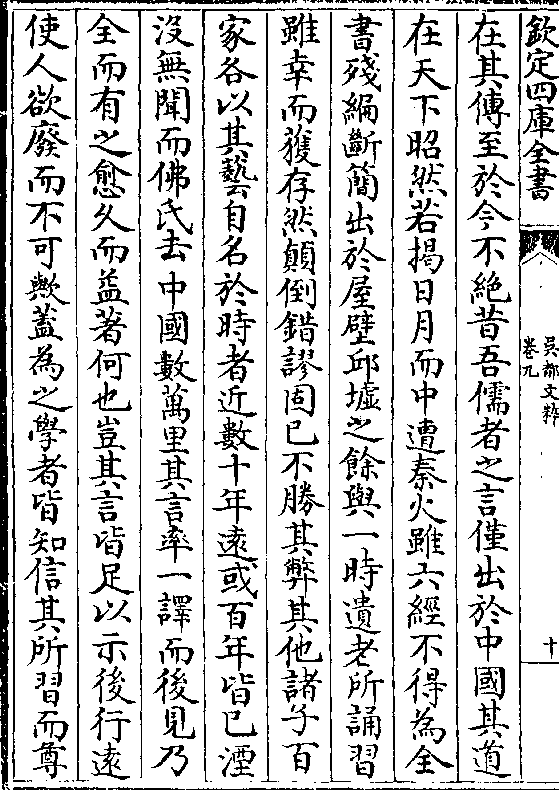 欽定四庫全書
吳都文粹
卷九
十
在其傳至於今不絶昔吾儒者之言僅出於中國其道
在天下昭然若揭日月而中遭秦火雖六經不得為全
書殘編斷簡出於屋壁邱墟之餘與一時遺老所誦習
雖幸而獲存然顛倒錯謬固已不勝其弊其他諸子百
家各以其藝自名於時者近數十年遠或百年皆已湮
沒無聞而佛氏去中國數萬里其言率一譯而後見乃
全而有之愈久而益著何也豈其言皆足以示後行遠
使人欲廢而不可歟蓋為之學者皆知信其所習而尊